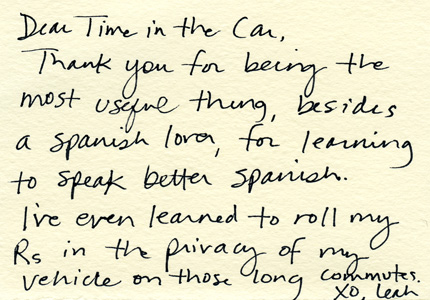 Dear Time in the Car,
Thank you for being the
most useful thing, besides
a spanish lover, for learning
to speak better spanish.
I've even learned to roll my
Rs in the privacy of my
vehicle on those long commutes.
XO, Leah